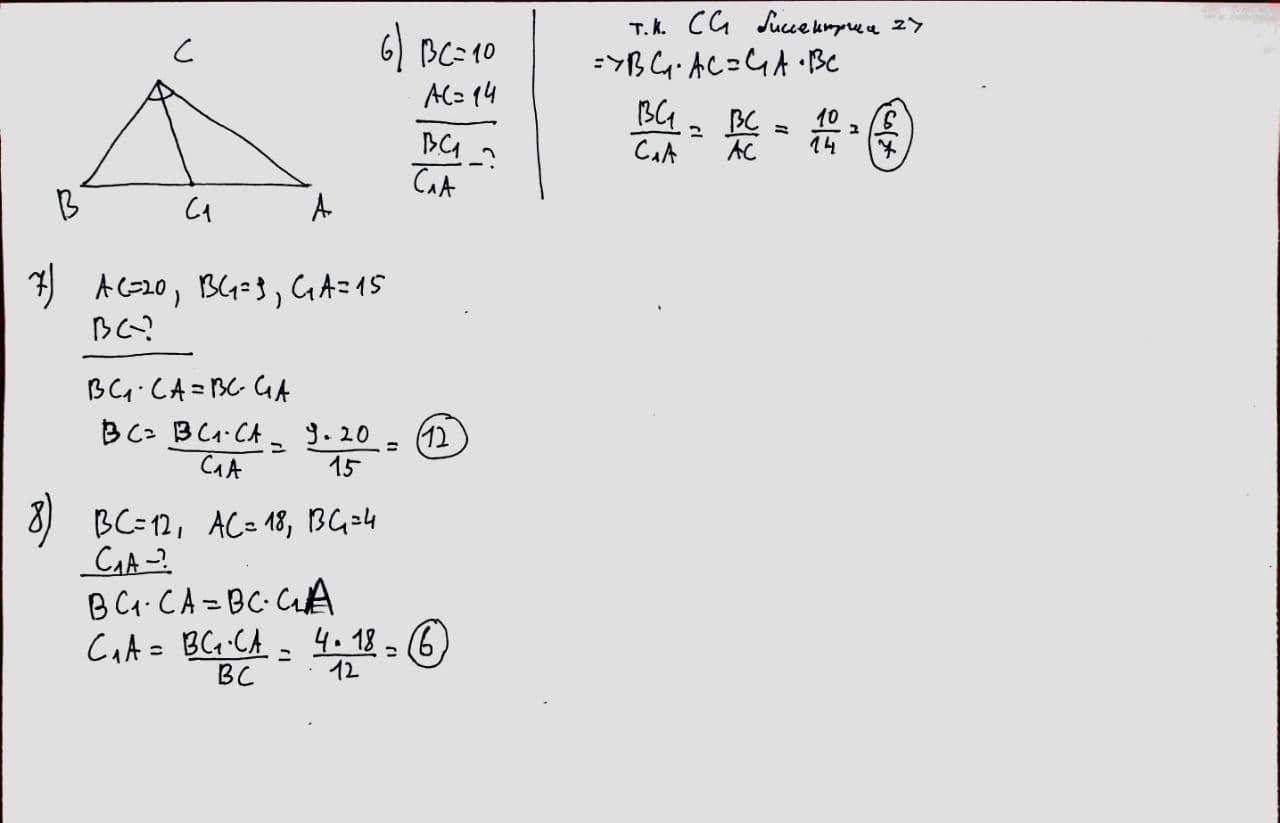 C
B
C₁
A
6) BC=10
AC=14
BC₁/C₁A -?
т.к. CC₁ биссектриса =>
=> BC₁·AC=C₁A·BC
BC₁/C₁A = BC/AC = 10/14 = 5/7
7) AC=20, BC₁=9, C₁A=15
BC-?
BC₁·CA=BC·C₁A
BC= BC₁·CA/C₁A = 9·20/15 = 12
8) BC=12, AC=18, BC₁=4
C₁A-?
BC₁·CA=BC·C₁A
C₁A= BC₁·CA/BC = 4·18/12 = 6